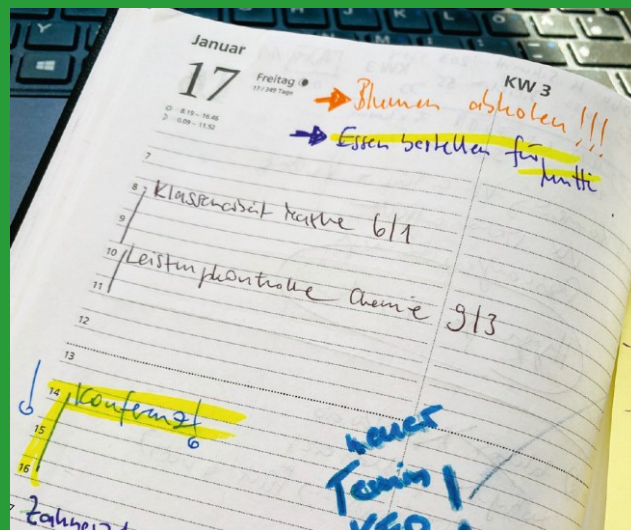 Januar
17
Freitag
17 / 349 Tage
KW 3
8.19 – 16.46
Blumen abholen!!!
Essen bestellen für
Mutti
7
8 Klassenarbeit Mathe 6/1
9
10 Leistungskontrolle Chemie 9/3
11
12
13
14 Konferenz
15
16
neuer
Termin